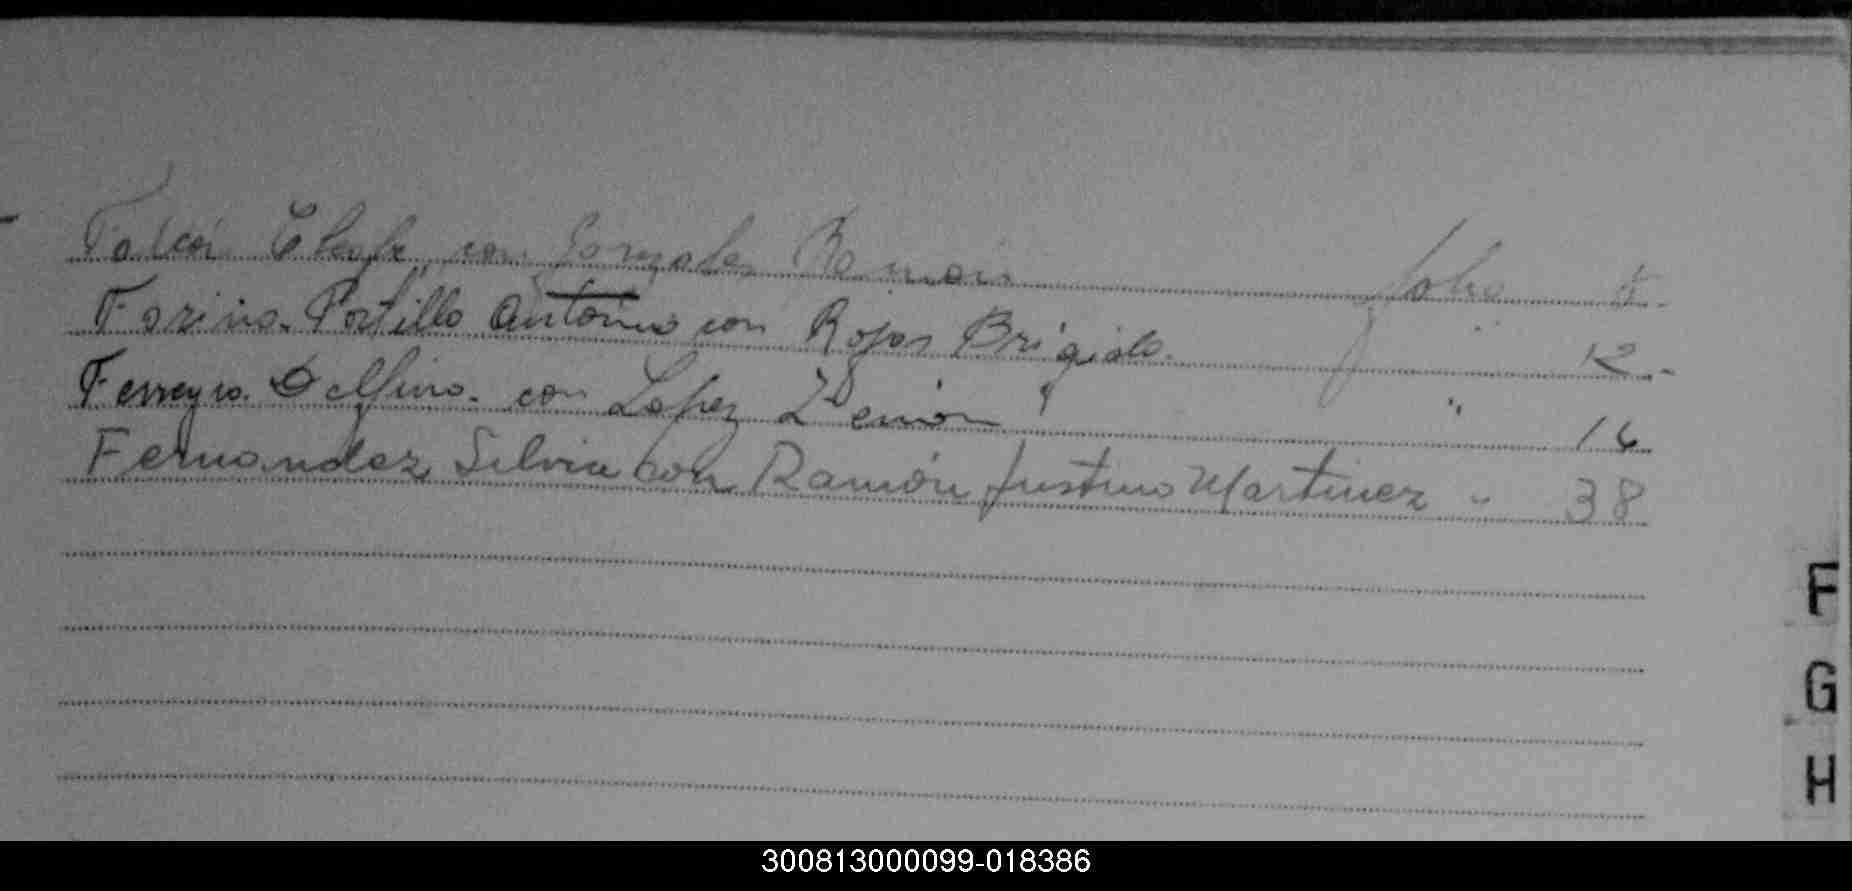 Falcón con Gonzalez Ramón folio
Farina Portillo Antonio con Rojas Brigida. " 12.
Ferreyra Delfina. con Lopez Zenón " 16
Fernandez Silvia con Ramón Justino Martinez " 38
F
G
H
300813000099-018386